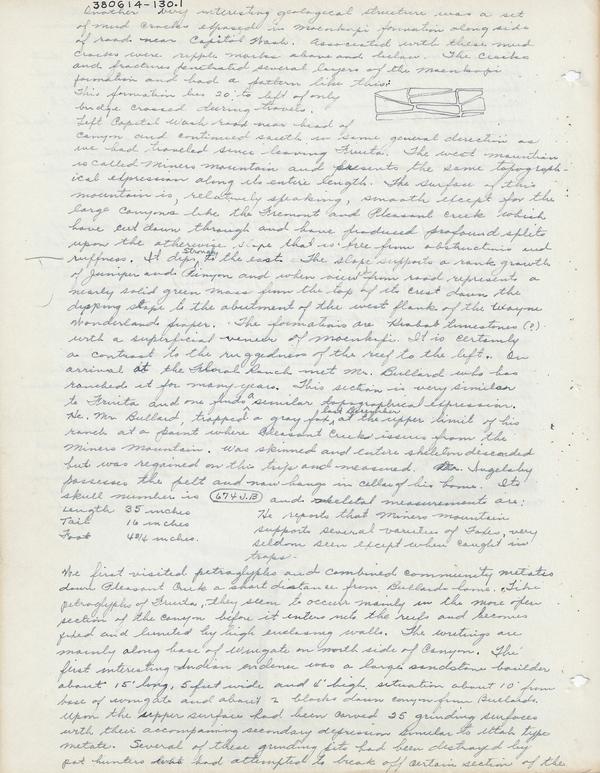 380614-130.1
Another very interesting geological structure was a set
of mud cracks exposed in Moenkopi formation along side
of road near Capitol Wash. Associated with these mud
cracks were ripple marks above and below. The cracks
and fractures penetrated several layers of the Moenkopi
formation and had a pattern like this:
This formation lies 20' to left of only
bridge crossed during travels.
Left Capitol Wash road near head of
canyon and continued south in same general direction as
we had traveled since leaving Fruita. The west mountain
is called Miners Mountain and presents the same topograph-
ical expression along its entire length. The surface of this
mountain is, relatively speaking, smooth except for the
large canyons like the Fremont and Pleasant Creek which
have cut down through and have produced profound splits
upon the otherwise slope that is free from obstructions and
ruffness. It dips strongly to the east. The slope supports a rank growth
of Juniper and Pinyon and when view from road represents a
nearly solid green mass from the top of its crest down the
dipping slope to the abutment of the west flank of the Wayne
Wonderland proper. The formations are Kiabab limestones (?)
with a superficial veneer of Moenkopi. It is certainly
a contrast to the ruggedness of the reef to the left. On
arrival at the Floral Ranch met Mr. Bullard who has
ranched it for many years. This section is very similar
to Fruita and one finds a similar topographical expression.
He, Mr Bullard, trapped a gray fox last December at the upper limit of his
ranch at a point where Pleasant Creek issues from the
Miners Mountain. Was skinned and entire skeleton discarded
but was regained on this trip and measured. Mr. Inglesby
possesses the pelt and now hangs in cellar of his home. Its
skull number is 674 J.B and skeletal measurements are:
Length 35 inches
Tail 16 inches
Foot 4 3/4 inches.
He reports that Miners mountain
supports several varieties of Foxes, very
seldom seen except when caught in
traps.
We first visited petroglyphs and combined community metates
down Pleasant Creek a short distance from Bullards home. Like
petroglyphs of Fruita, they seem to occur mainly in the more open
section of the canyon before it enters into the reefs and becomes
and limited by high enclosing walls. The writings are
mainly along base of Wingate on north side of Canyon. The
first interesting Indian evidence was a large sandstone boulder
about 15' long, 5 feet wide and 4' high, situation about 10' from
base of wingate and about 2 blocks down canyon from Bullards.
Upon the upper surface had been carved 35 grinding surfaces
with their accompaning secondary depression similar to Utah type
metate. Several of these grinding pits had been destroyed by
pot hunters had attempted to break off certain section of the